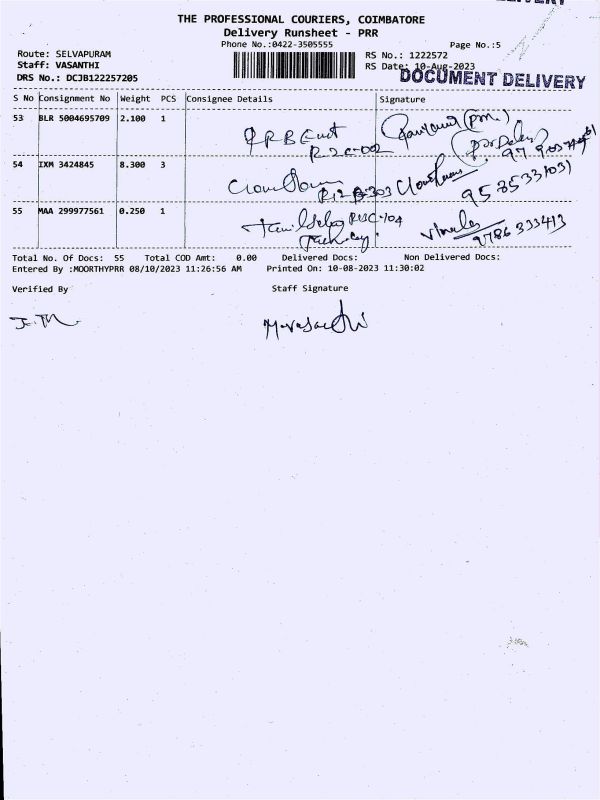 THE PROFESSIONAL COURIERS, COIMBATORE
Delivery Runsheet - PRR
Phone No.:0422-3505555
Page No.:5
Route: SELVAPURAM
Staff: VASANTHI
DRS No.: DCJB122257205
RS No.: 1222572
RS Date: 10-Aug-2023
DOCUMENT DELIVERY
S No Consignment No Weight PCS Consignee Details Signature
53 BLR 5004695709 2.100 1
54 IXM 3424845 8.300 3
9535331031
55 MAA 299977561 0.250 1
9786333413
Total No. Of Docs: 55 Total COD Amt: 0.00 Delivered Docs: Non Delivered Docs:
Entered By :MOORTHYPRR 08/10/2023 11:26:56 AM Printed On: 10-08-2023 11:30:02
Verified By Staff Signature